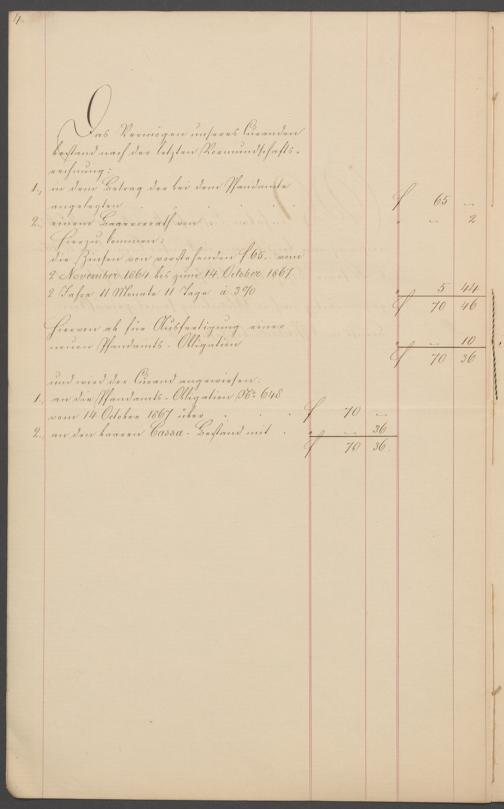 4.
Das Vermögen unseres Curanden
bestand nach der letzten Vormundschafts-
rechnung:
1., in dem Betrag der bei dem Pfandamte
angelegten . . . . . . f 65 –
2., einem Baarvorrath von „ – 2
Hierzu kommen:
die Zinsen von vorstehenden f 65. vom
2 November 1864 bis zum 14. October 1867.
2 Jahre 11 Monate 11 Tage à 3% „ 5 44
f 70 46
Hiervon ab für Ausfertigung einer
neuen Pfandamts-Obligation „ – 10
f 70 36
und wird der Curand angewiesen:
1., an die Pfandamts-Obligation No. 648
vom 14 October 1867 über . . . f 70 –
2., an den baaren Cassa-Bestand mit . „ – 36
f 70 36.